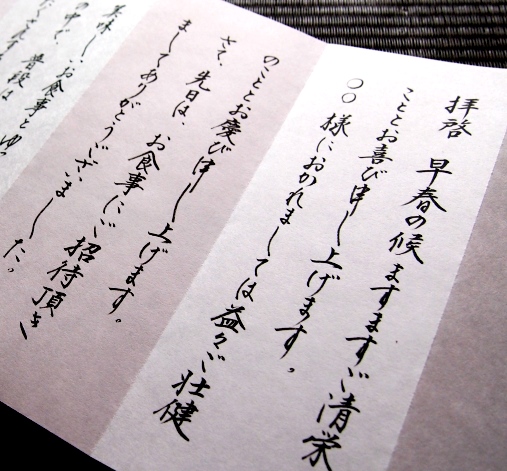 拝啓 早春の候ますますご清栄
こととお喜び申し上げます。
〇〇様におかれましては益々ご壮健
のこととお慶び申し上げます。
さて、先日は、お食事にご招待頂き
ましてありがとうございました。
美味しいお食事とゆっ
の中で、普段は